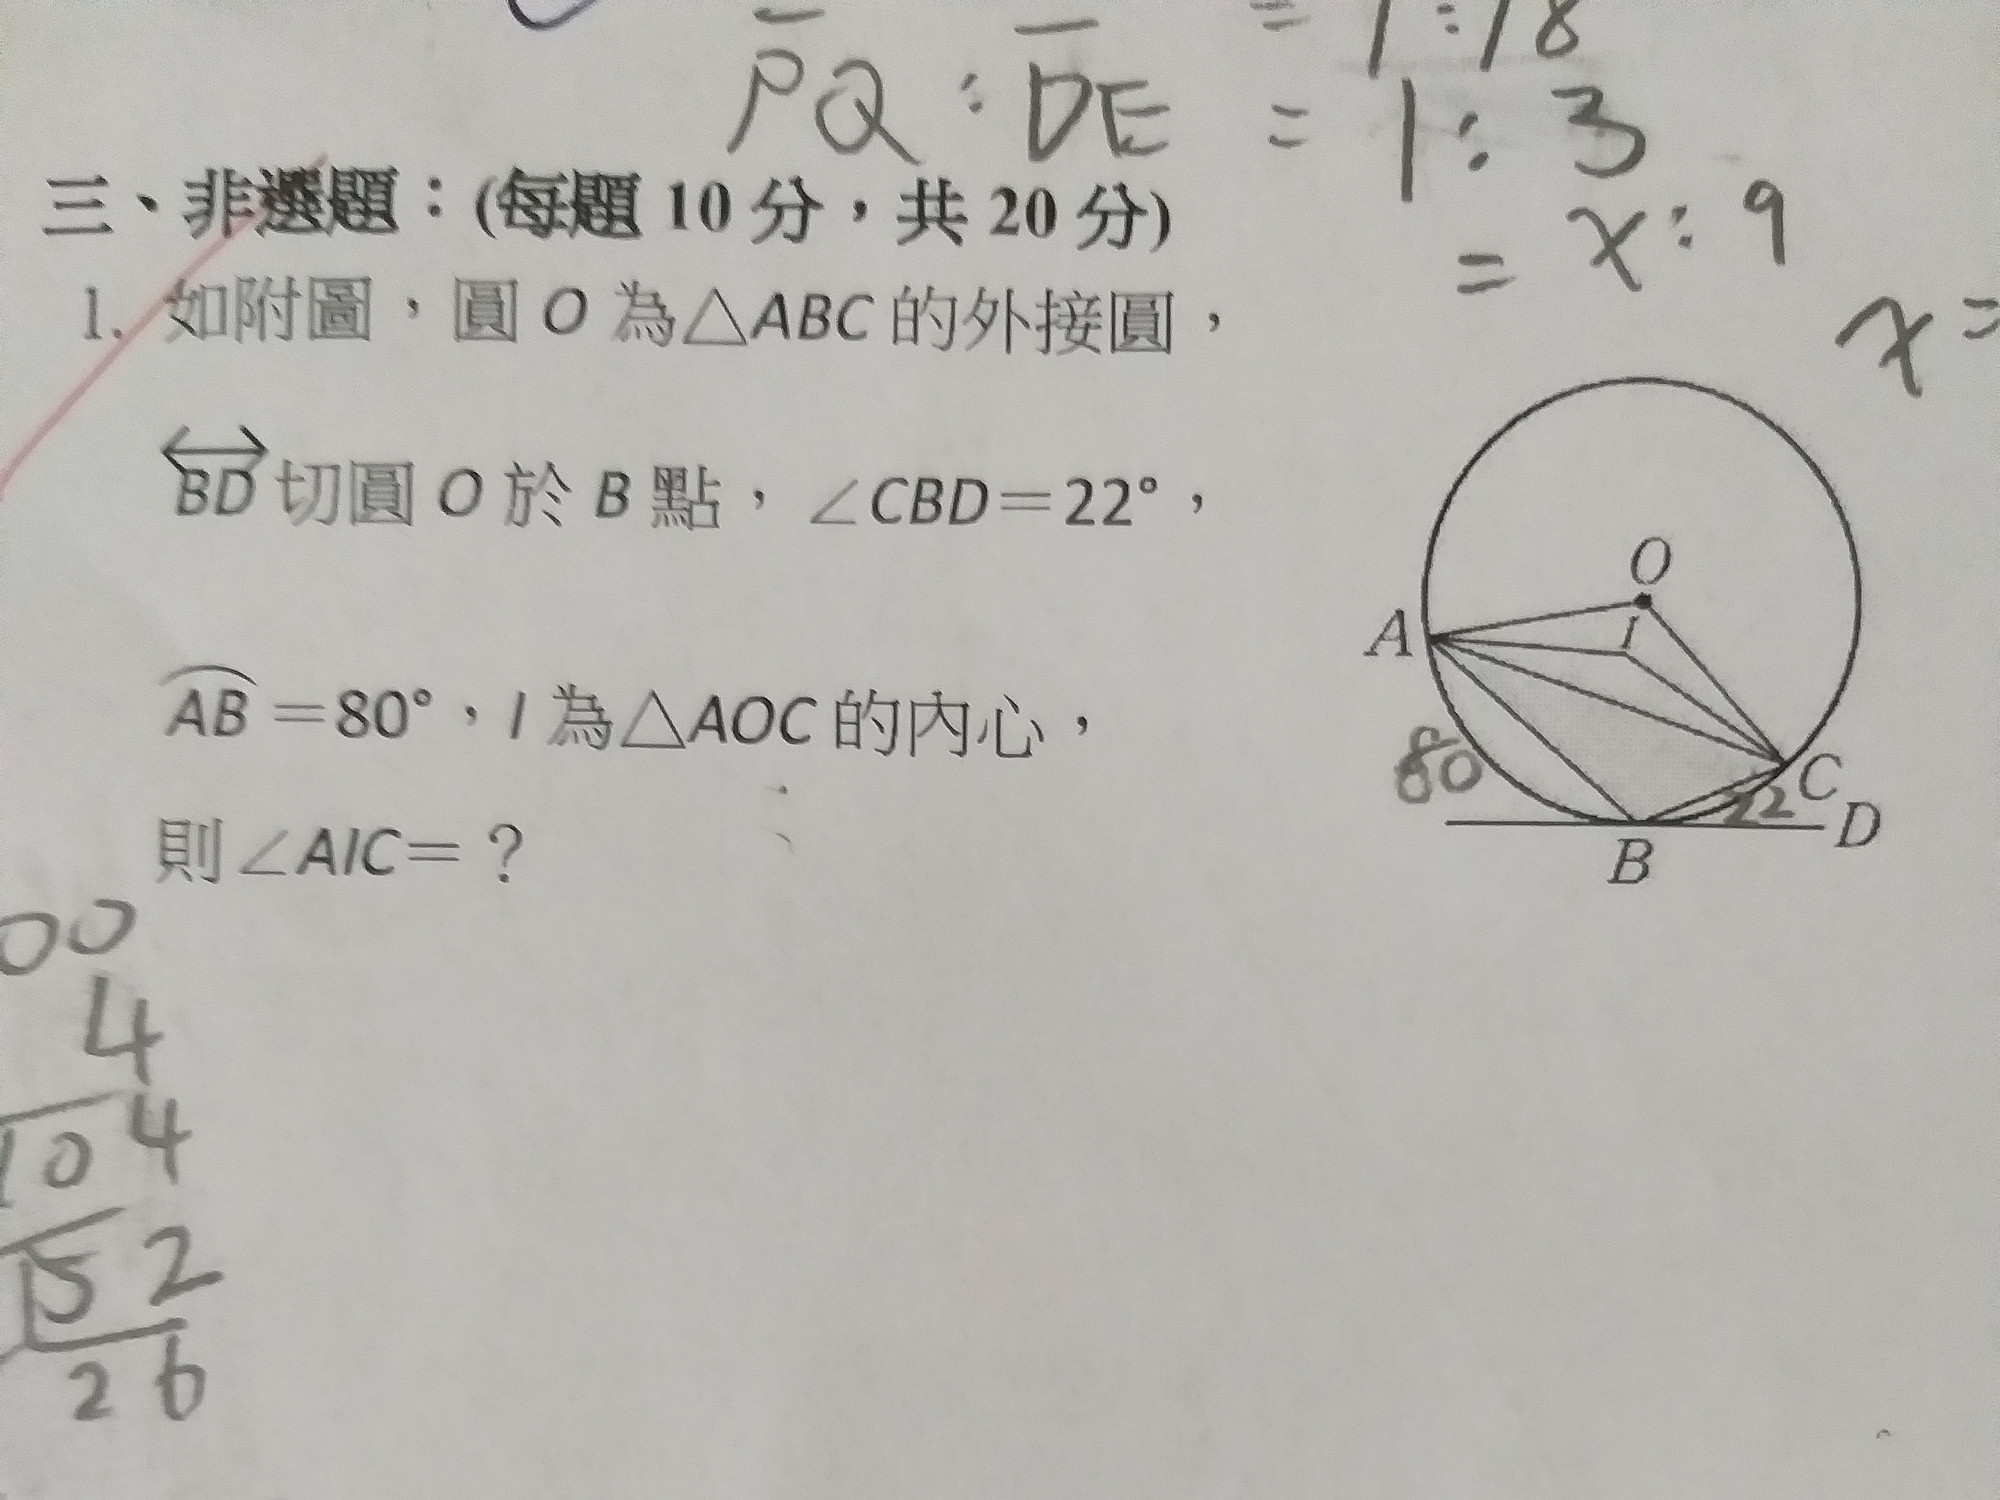 = 1:18
PQ : DE = 1:3
= x:9
x=
三、非選題：(每題 10 分，共 20 分)
1. 如附圖，圓 O 為△ABC 的外接圓，
BD 切圓 O 於 B 點，∠CBD＝22°，
AB＝80°，I 為△AOC 的內心，
則∠AIC＝？
O
I
A
80
C
22
D
B
00
4
104
52
26